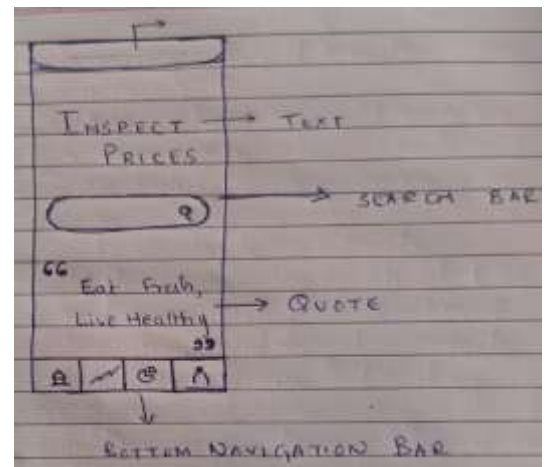 INSPECT → TEXT
PRICES
SEARCH BAR
“ Eat Fresh,
Live Healthy ”
→ QUOTE
BOTTOM NAVIGATION BAR